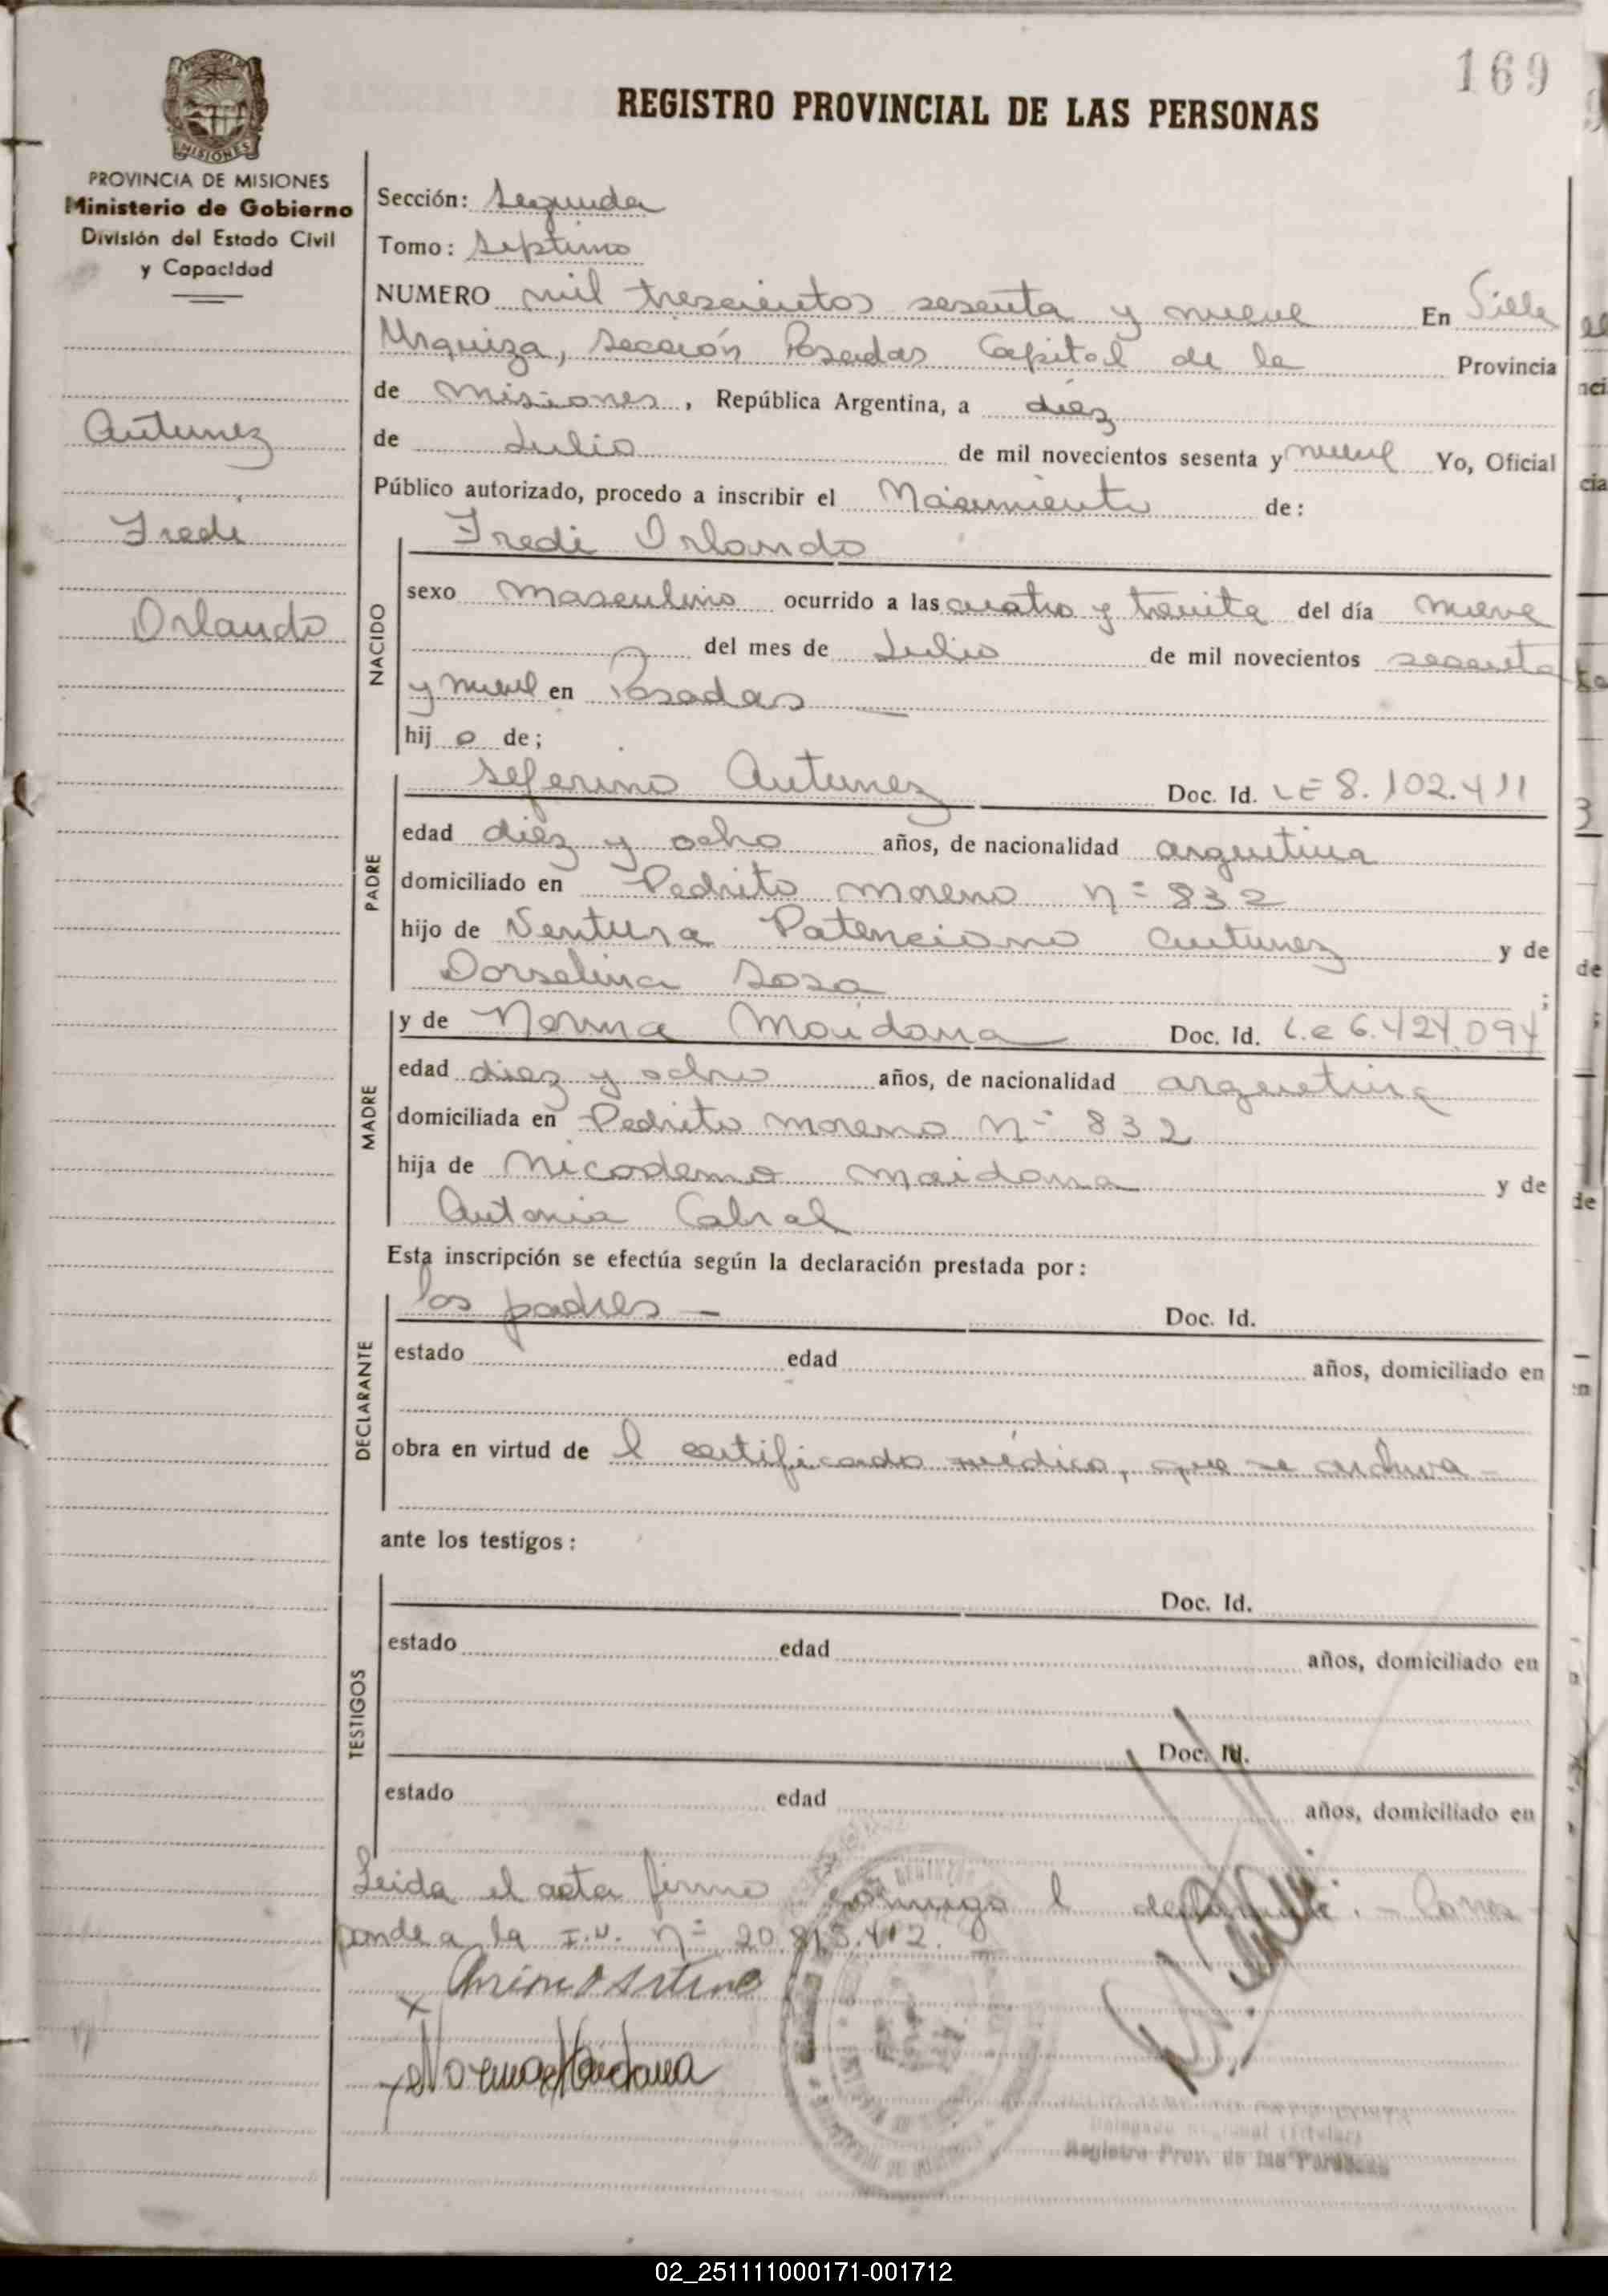 169
REGISTRO PROVINCIAL DE LAS PERSONAS
MISIONES
PROVINCIA DE MISIONES
Ministerio de Gobierno
División del Estado Civil
y Capacidad
Antunez
Fredi
Orlando
Sección: Segunda
Tomo: Septimo
NUMERO mil trescientos sesenta y nueve En Villa
Urquiza, Sección Posadas Capital de la Provincia
de Misiones, República Argentina, a diéz
de Julio de mil novecientos sesenta y nueve Yo, Oficial
Público autorizado, procedo a inscribir el Nacimiento de:
NACIDO
Fredi Orlando
sexo masculino ocurrido a las cuatro y treinta del día nueve
del mes de Julio de mil novecientos sesenta
y nueve en Posadas
hij o de;
PADRE
Seferino Antunez Doc. Id. LE 8.102.411
edad diéz y ocho años, de nacionalidad argentina
domiciliado en Pedrito Moreno nº 832
hijo de Ventura Patenciano Antunez y de
Dorselina Sosa ;
MADRE
y de Norma Maidana Doc. Id. L.e 6.424.094
edad diez y ocho años, de nacionalidad argentina
domiciliada en Pedrito Moreno Nº 832
hija de Nicodemo Maidana y de
Antonia Cabral
Esta inscripción se efectúa según la declaración prestada por:
DECLARANTE
los padres - Doc. Id.
estado edad años, domiciliado en
obra en virtud de l certificado médico, que se archiva -
ante los testigos:
TESTIGOS
Doc. Id.
estado edad años, domiciliado en
Doc. Id.
estado edad años, domiciliado en
Leida el acta firma conmigo l declarante. - Corres
ponde a la I.U. nº 20.813.412.
Norma Maidana
Registro Prov. de las Personas
02_251111000171-001712